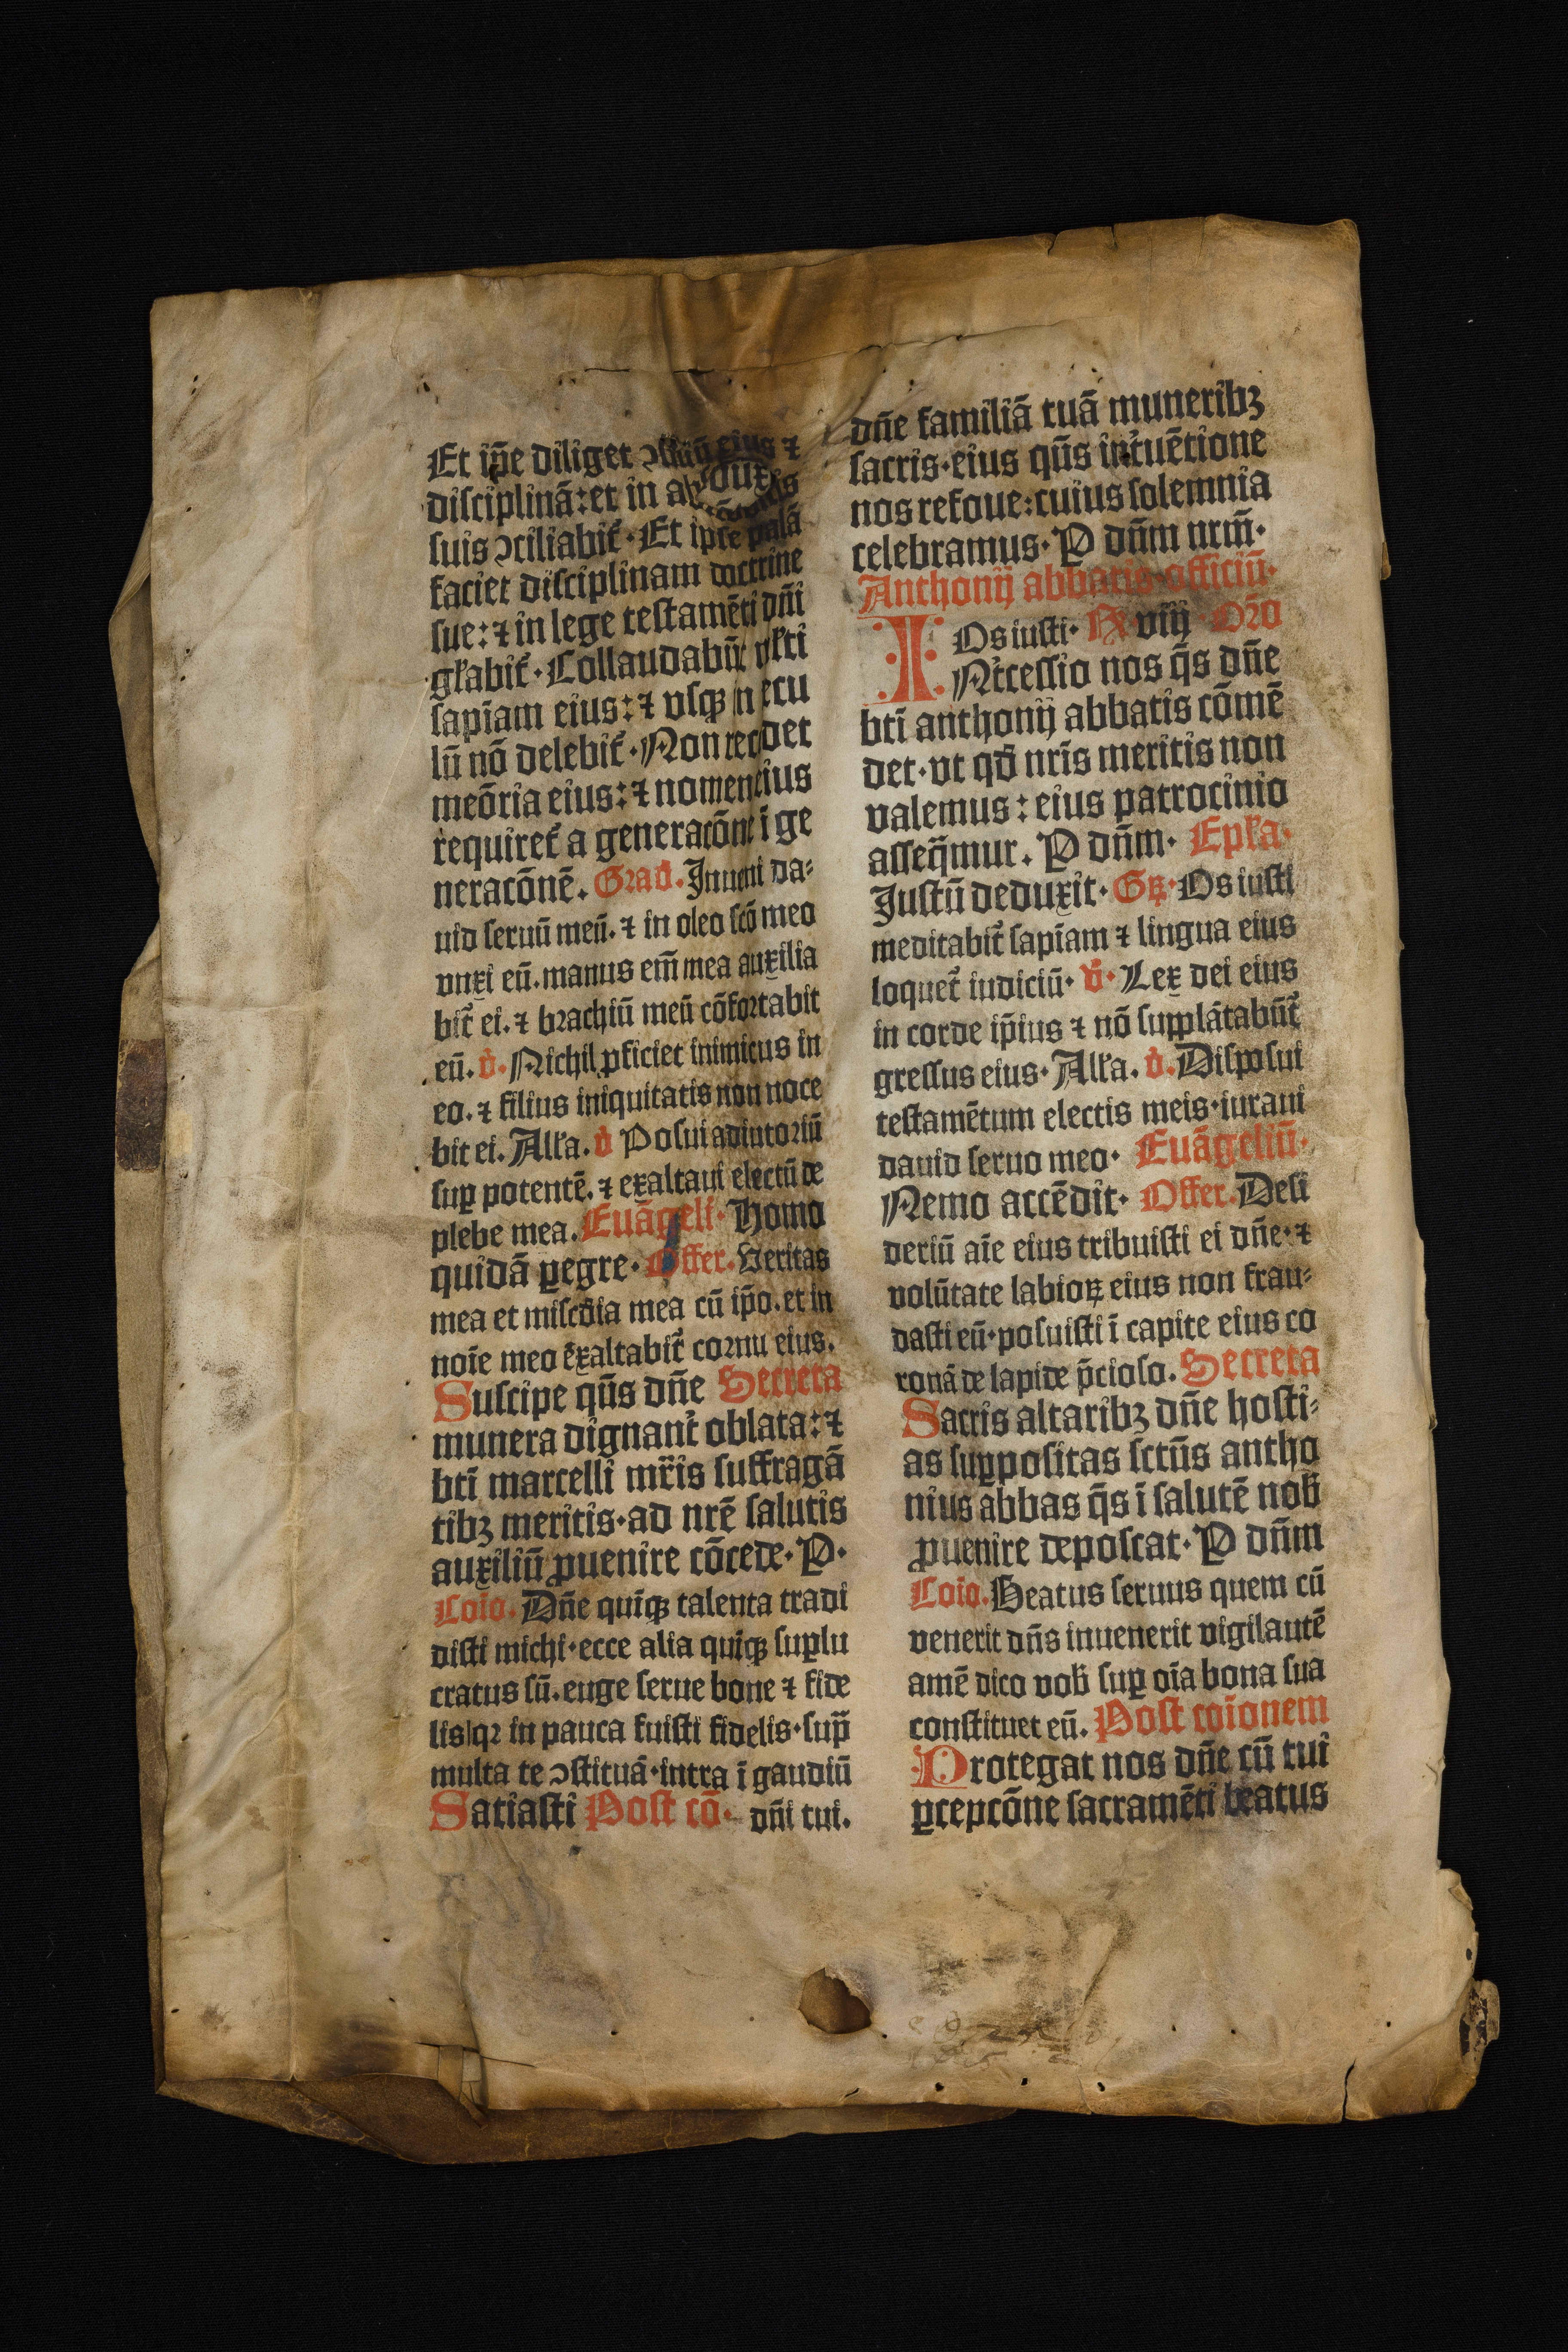 Et ip̄e diliget ↄſiliū eius ⁊
diſciplinā: et in abſcōditis
ſuis ↄciliabit᷑· Et ipſe palā
faciet diſciplinam doctrine
ſue: ⁊ in lege teſtamēti dn̄i
gl̄abit᷑· Collaudabūt ml̄ti
ſapīam eius: ⁊ vſqꝫ in ſecu
lū nō delebit᷑· Non recedet
meōria eius: ⁊ nomen eius
requiret᷑ a generacōne ī ge
neracōnē. Grad̄. Inueni da⸗
uid ſeruū meū. ⁊ in oleo ſcō meo
vnxi eū. manus em̄ mea auxilia
bit᷑ ei. ⁊ brachiū meū cōfortabit
eū. v̄. Nichil ꝓficiet inimicus in
eo. ⁊ filius iniquitatis non noce
bit ei. Alla. v̄ Poſui adiutoriū
ſuꝑ potentē. ⁊ exaltaui electū de
plebe mea. Euāgeli· Homo
quidā ꝑegre· Offer. Veritas
mea et miſcd̄ia mea cū ip̄o. et in
noīe meo exaltabit᷑ cornu eius.
Suſcipe qūs dn̄e Secreta
munera dignant᷑ oblata: ⁊
btī marcelli mr̄is ſuffragā
tibꝫ meritis· ad nrē ſalutis
auxiliū ꝓuenire cōcede· P·
Coīo. Dn̄e quiqꝫ talenta tradi
diſti michi· ecce alia quiqꝫ ſuꝑlu
cratus ſū. euge ſerue bone ⁊ fide
lis qꝛ in pauca fuiſti fidelis· ſup̄
multa te ↄſtituā· intra ī gaudiū
Satiaſti Poſt cō· dn̄i tui.
dn̄e familiā tuā muneribꝫ
ſacris· eius qūs int᷑uētione
nos refoue: cuius ſolemnia
celebramus· P dn̄m nrm̄·
Anthonij abbatis officiū·
Os iuſti· R viij Oro
INt᷑ceſſio nos q̄s dn̄e
btī anthonij abbatis cōmē
det· vt qd̄ nrīs meritis non
valemus: eius patrocinio
aſſeq̄mur. P dn̄m· Epl̄a·
Iuſtū deduxit· Gꝝ· Os iuſti
meditabit᷑ ſapīam ⁊ lingua eius
loquet᷑ iudiciū· v̄· Lex dei eius
in corde ip̄ius ⁊ nō ſupplātabūt᷑
greſſus eius· Alla. v̄. Diſpoſui
teſtamētum electis meis· iuraui
dauid ſeruo meo· Euāgeliū·
Nemo accēdit· Offer. Deſi
deriū aīe eius tribuiſti ei dn̄e· ⁊
volūtate labioꝝ eius non frau⸗
daſti eū· poſuiſti ī capite eius co
ronā de lapide p̄cioſo. Secreta
Sacris altaribꝫ dn̄e hoſti⸗
as ſuꝑpoſitas ſctūs antho
nius abbas q̄s ī ſalutē nob̄
ꝓuenire depoſcat· P dn̄m
Coīo. Beatus ſeruus quem cū
venerit dn̄s inuenerit vigilantē
amē dico vob̄ ſuꝑ oīa bona ſua
conſtituet eū. Poſt coīonem
Protegat nos dn̄e cū tui
ꝑcepcōne ſacramēti beatus